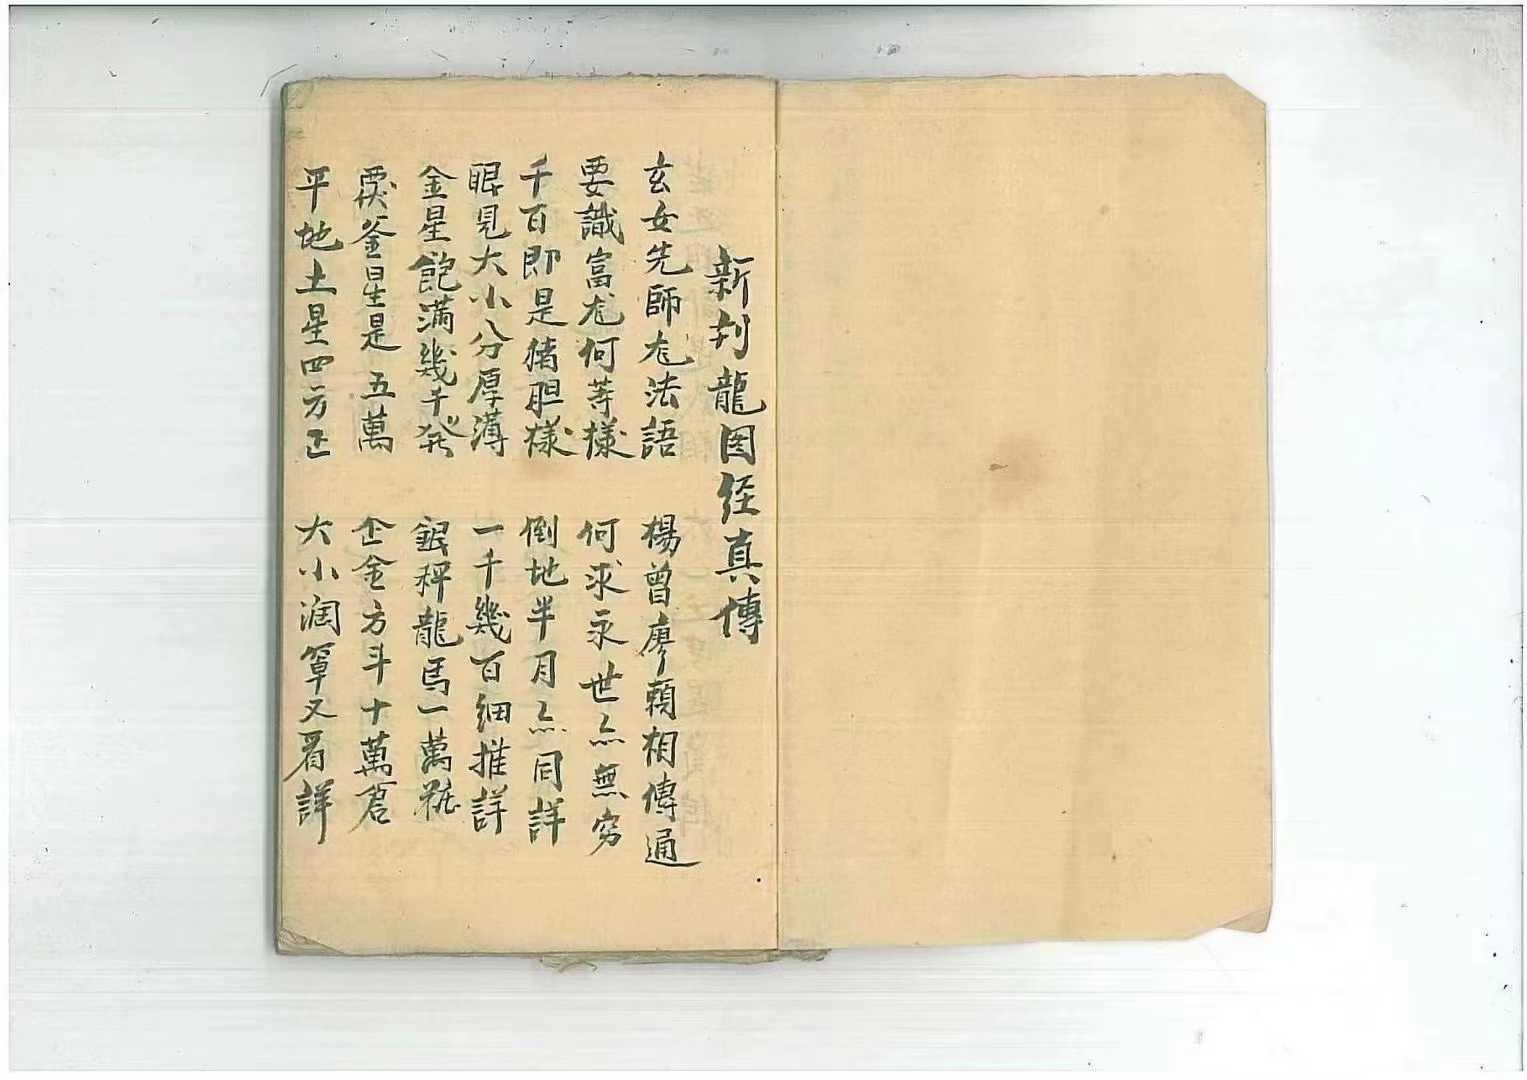 新刋龍图经真傳
玄女先師尨法語 楊曾廖賴相傳通
要識富尨何等樣 何求永世亦無穷
千百即是猪胆樣 倒地半月亦同詳
眼見大小分厚薄 一千幾百細推詳
金星飽满幾千 銀秤龍馬一萬粧
覆釜星是五萬 金方斗十萬君
平地土星四方正 大小润窄又看詳